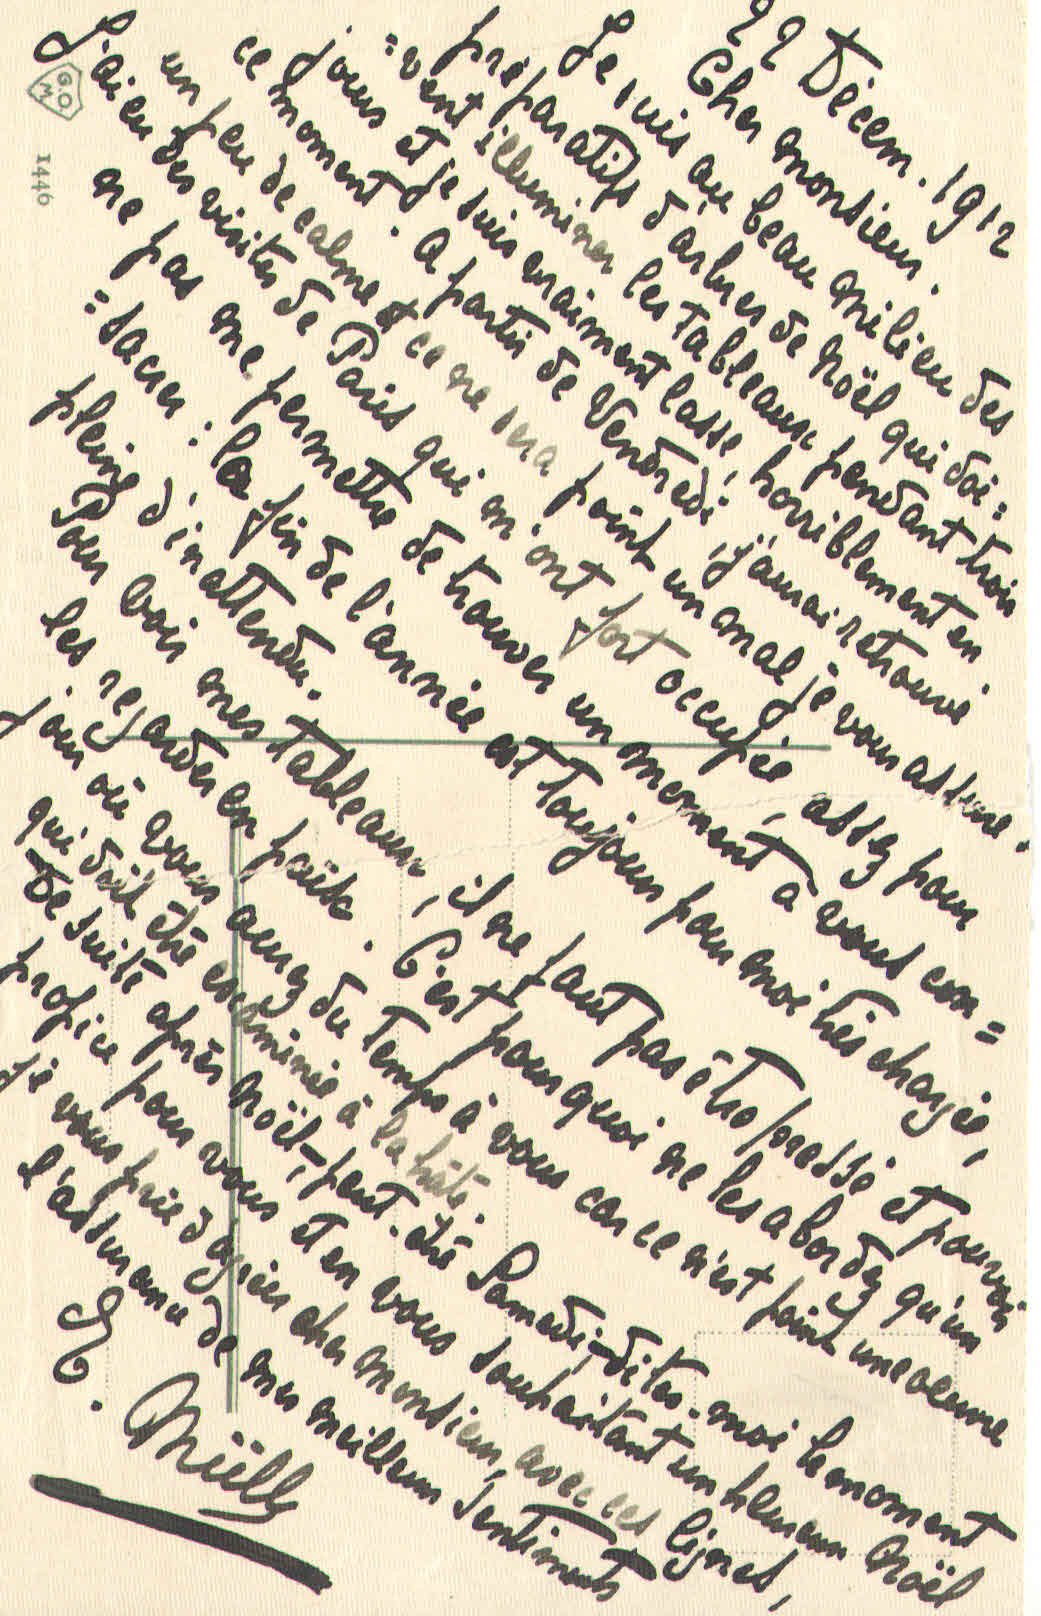 22 Décem. 1912
Cher monsieur.
Je suis au beau milieu des
préparatifs d'arbres de Noël qui doi=
=vent illuminer les tableaux pendant trois
jours et je suis vraiment lasse, horriblement en
ce moment. A partir de Vendredi, j'aurai retrouvé
un peu de calme et ce ne sera point un mal je vous assure.
J'ai eu des visites de Paris qui m'ont fort occupée, assez pour
ne pas me permettre de trouver un moment à vous con=
=sacrer : la fin de l'année est toujours pour moi très chargée,
pleine d'inattendu.
Pour voir mes tableaux, il ne faut pas être pressé et pouvoir
les regarder en paix. C'est pourquoi ne les abordez qu'un
jour où vous aurez du temps à vous car ce n'est point une œuvre
qui doit être examinée à la hâte.
De suite après Noël, – peut-être Samedi, – dites-moi le moment
propice pour vous et en vous souhaitant un heureux Noël
je vous prie d'agréer cher monsieur, avec ces lignes,
l'assurance de mes meilleurs sentiments
G.O.M
1446